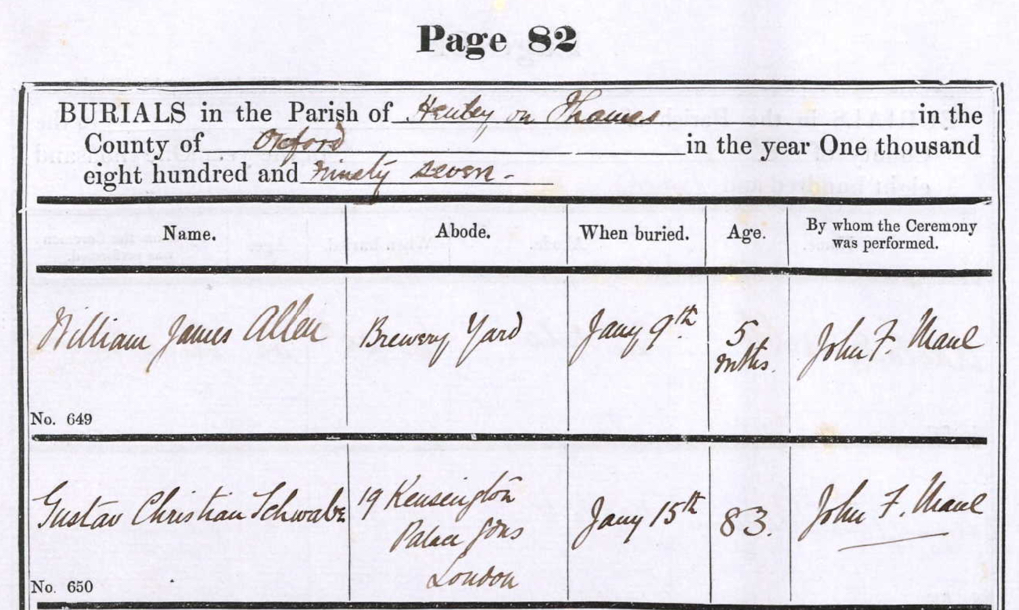 Page 82
BURIALS in the Parish of Henley on Thames in the
County of Oxford in the year One thousand
eight hundred and ninety seven.-
Name. Abode. When buried. Age. By whom the Ceremony
was performed.
William James Allen Brewery Yard Jany 9th 5 John F. Maul
mths.
No. 649
Gustav Christian Schwabe 19 Kensington Jany 15th 83. John F. Maul
Palace Gdns
London
No. 650